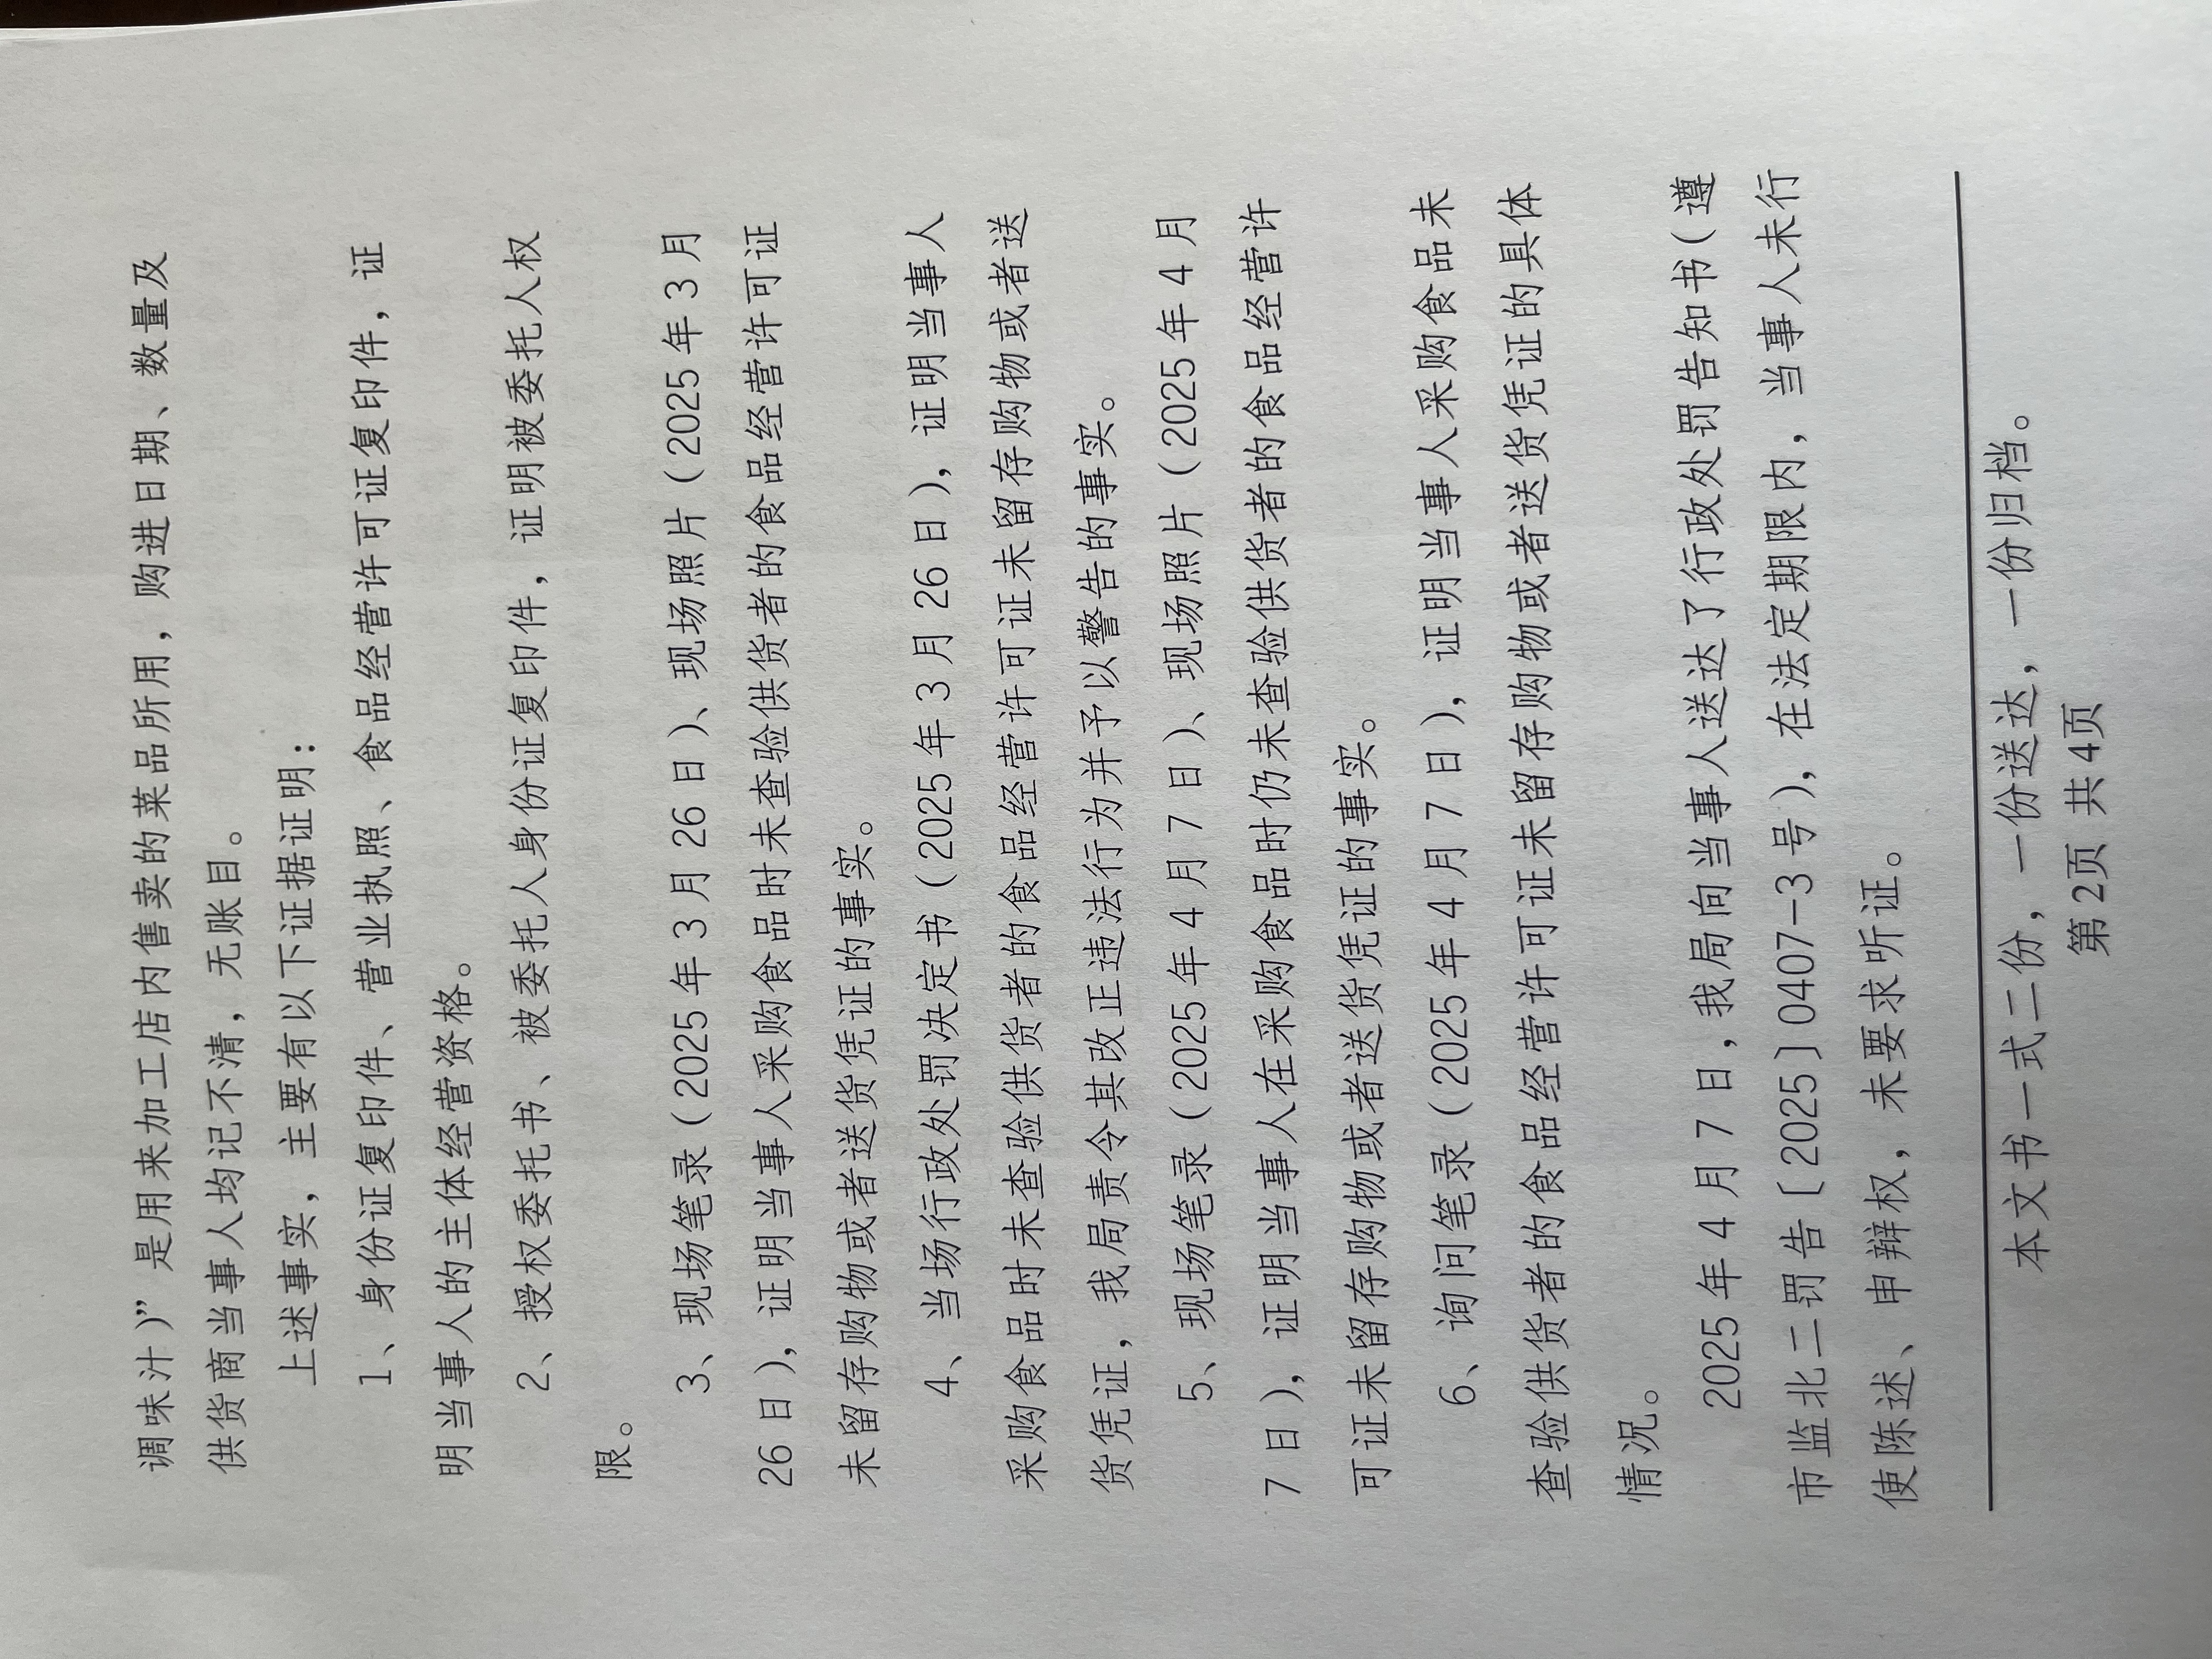 调味汁)”是用来加工店内售卖的菜品所用，购进日期、数量及
供货商当事人均记不清，无账目。
上述事实，主要有以下证据证明：
1、身份证复印件、营业执照、食品经营许可证复印件，证
明当事人的主体经营资格。
2、授权委托书、被委托人身份证复印件，证明被委托人权
限。
3、现场笔录（2025年3月26日）、现场照片（2025年3月
26日），证明当事人采购食品时未查验供货者的食品经营许可证
未留存购物或者送货凭证的事实。
4、当场行政处罚决定书（2025年3月26日），证明当事人
采购食品时未查验供货者的食品经营许可证未留存购物或者送
货凭证，我局责令其改正违法行为并予以警告的事实。
5、现场笔录（2025年4月7日）、现场照片（2025年4月
7日），证明当事人在采购食品时仍未查验供货者的食品经营许
可证未留存购物或者送货凭证的事实。
6、询问笔录（2025年4月7日），证明当事人采购食品未
查验供货者的食品经营许可证未留存购物或者送货凭证的具体
情况。
2025年4月7日,我局向当事人送达了行政处罚告知书（遵
市监北二罚告〔2025〕0407-3号），在法定期限内，当事人未行
使陈述、申辩权，未要求听证。
本文书一式二份，一份送达，一份归档。
第2页 共4页